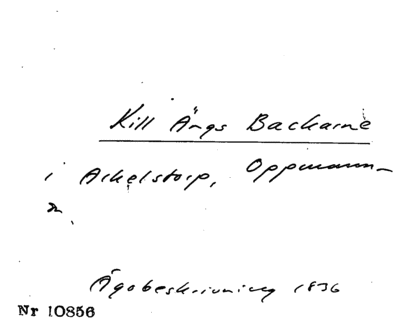 Kill Ängs Backarne
i Arkelstorp, Oppmann-
a.
Ägobeskrivning 1836
Nr 10856